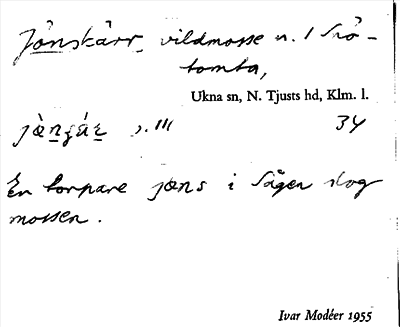 Jönskärr, vildmosse n. l
tomta,
Ukna sn, N. Tjusts hd, Klm. l.
34
En torpare jøns i Sågen slog
mossen.
Ivar Modéer 1955